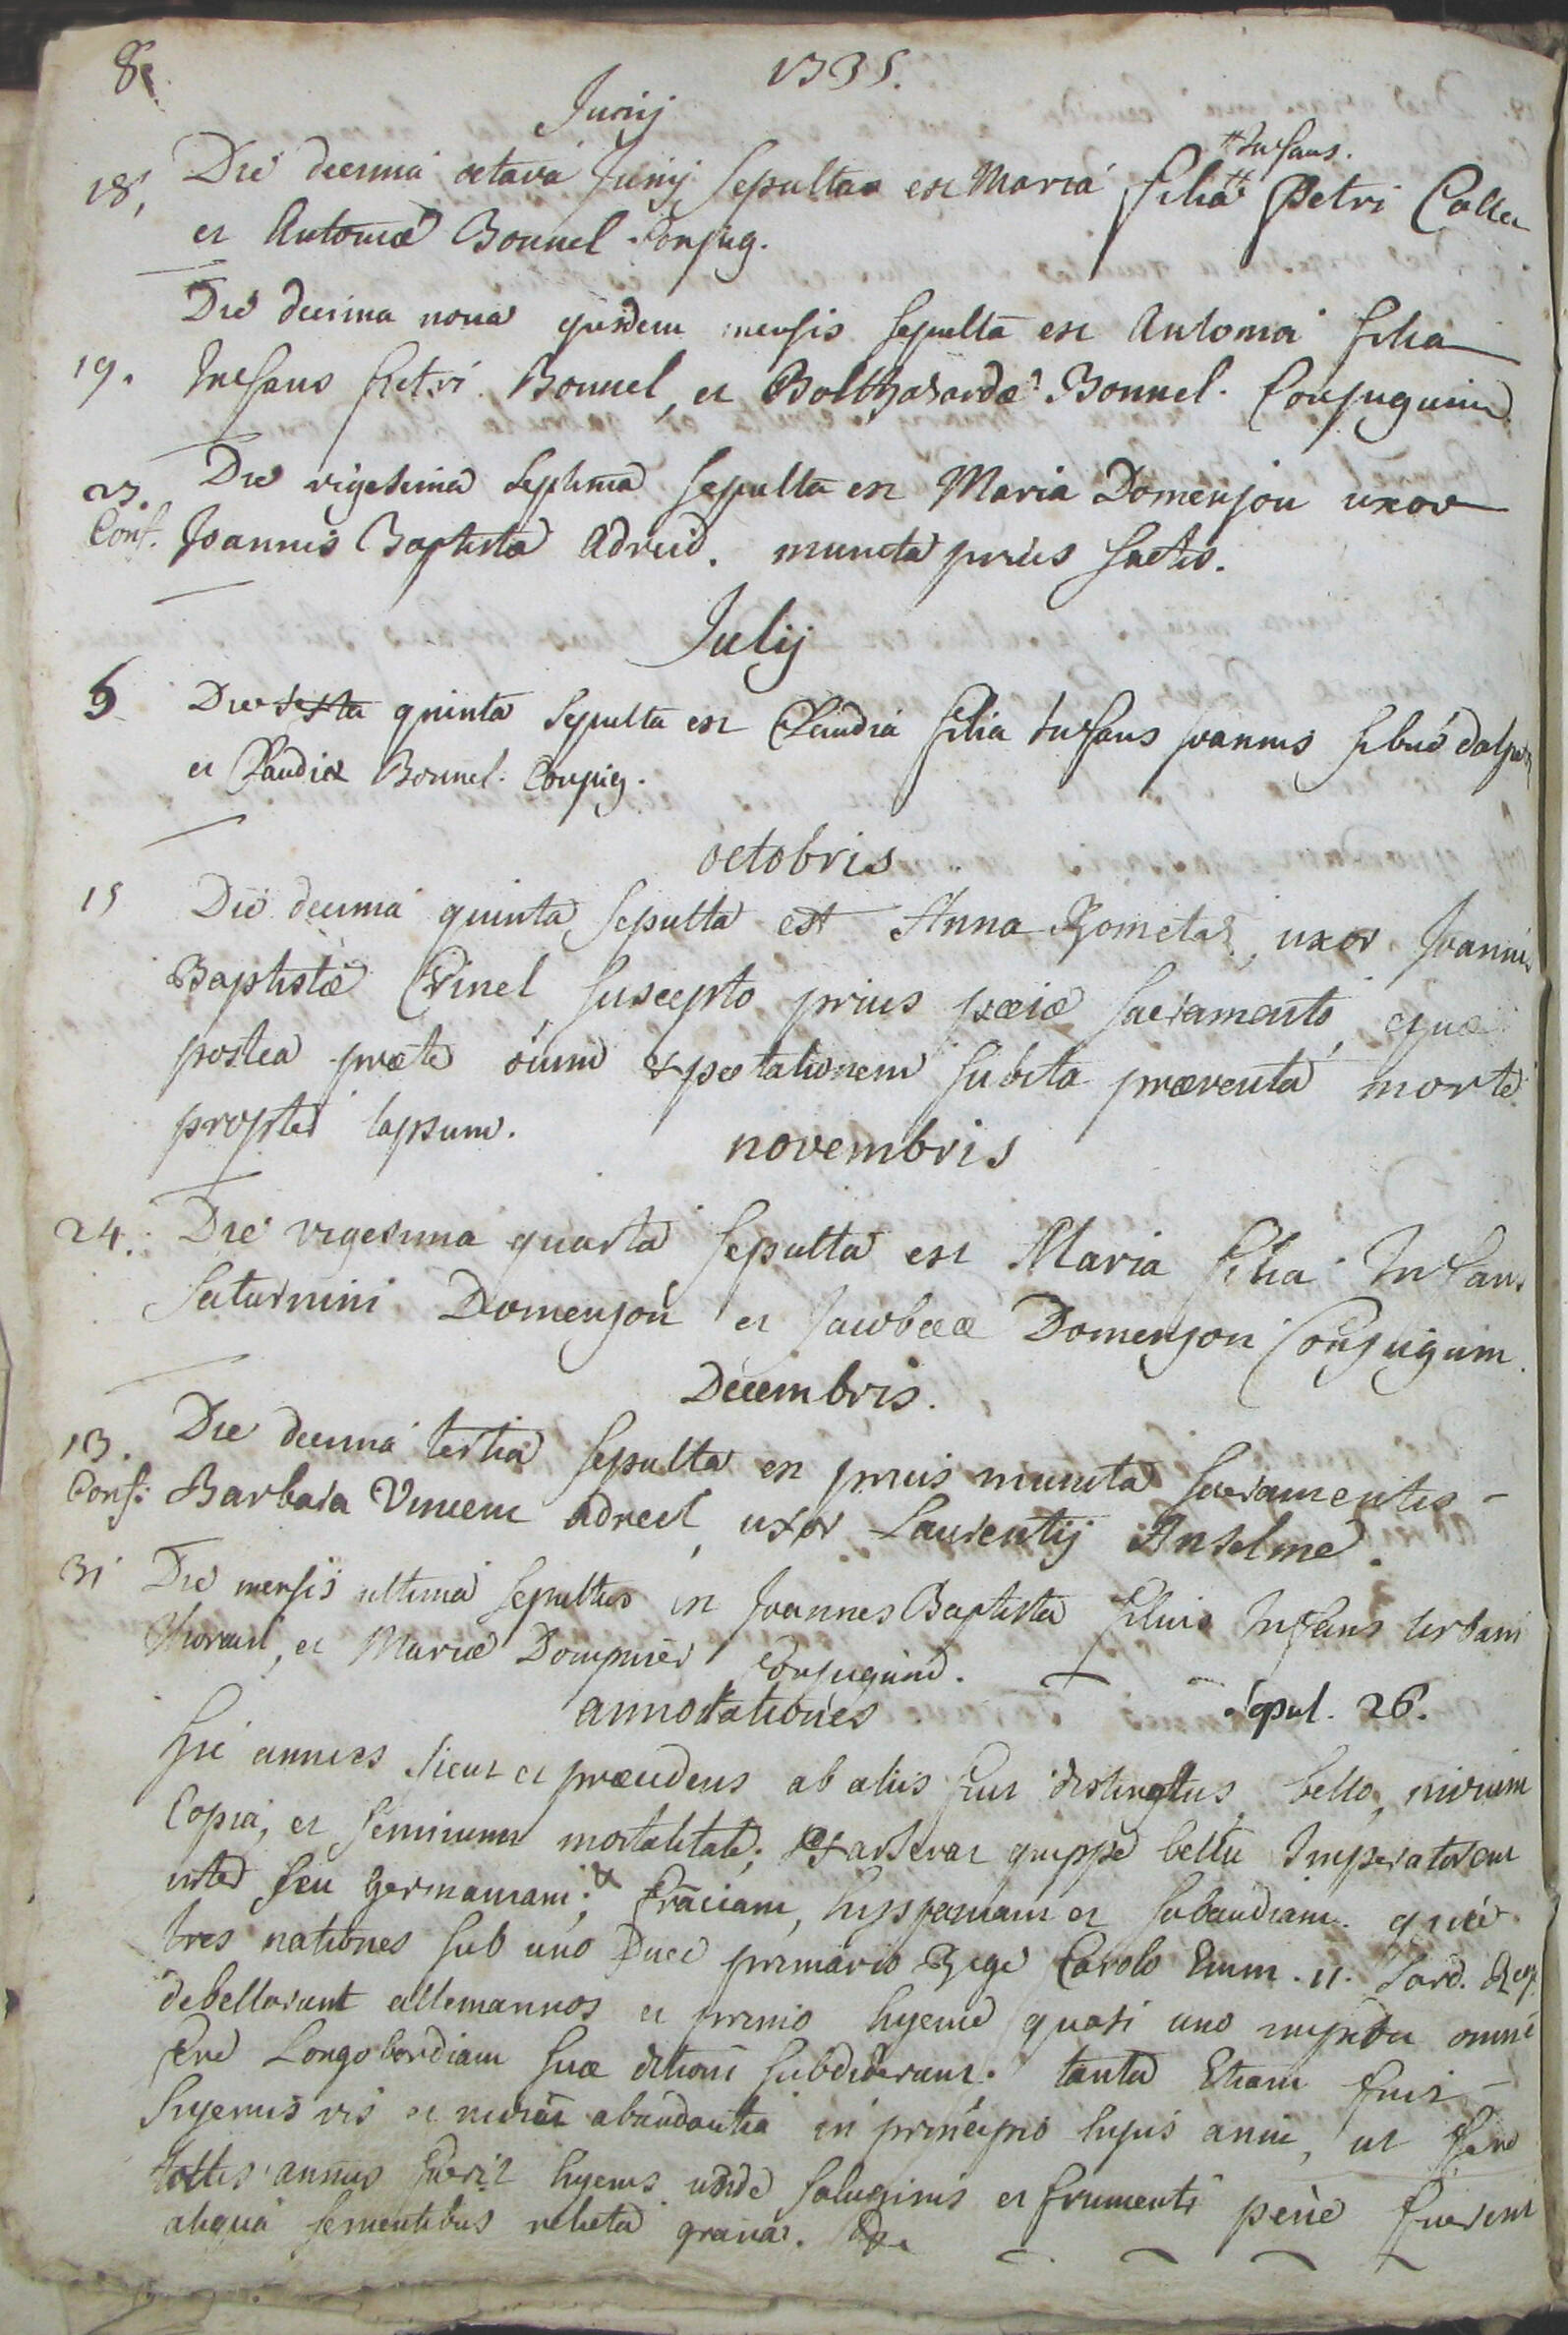 8.
1735.
Junij
18, Die decima octava Junij sepulta est Maria filia # Petri Caller
# Infans.
et Antoniæ Bonnel conjug.
Die decima nona ejusdem mensis sepulta est Antonia filia
19. Infans Petri Bonnel, et Balthazardæ Bonnel. Conjugum
27. Die vigesima septima sepulta est Maria Domenjou uxor
Conf. Joannis Baptistæ Adreid. munita prius sactis.
Julij
5 Die sexta quinta sepulta est Claudia filia Infans Joannis
et Claudiæ Bonnel. Conjug.
octobris
15 Die decima quinta sepulta est Anna Rometaz, uxor Joannis
Baptistæ Crinel, suscepto prius pœiæ sacramento, quæ
postea præter oium expectationem subita præventa morte
propter lapsum.
novembris
24. Die vigesima quarta sepulta est Maria filia Infans
Saturnini Domenjou et Jacobeæ Domenjou Conjugum.
Decembris.
13. Die decima tertia sepulta est prius munita sacramentis
Conf: Barbara Vincent adreid, uxor Laurentij Anselme.
31 Die mensis ultima sepultus est Joannes Baptista filius Infans Urbani
et Mariæ Dompnier Conjugum.
annotationes sepul. 26.
hic annus sicut et præcedens ab aliis fuit distinctus, bello, nivium
Copia, et seminum mortalitate; Exarserat quippe bellu Imperatorem
inter seu germaniam; & frāciam, hispaniam et sabaudiam. quæ
tres nationes sub uno Duce primario Rege Carolo Emm. Sard. Rege
debellarunt allemannos et primo hyeme quasi uno impetu omnē
ferè Longobardiam suæ ditioni subdiderunt. tanta Etiam fuit
hyemis vis et niviū abundantia in principio hujus anni, ut fere
totus annus fuerit hyems unde saluginis et frumenti penè fuerint
aliqua sementibus relicta grana.